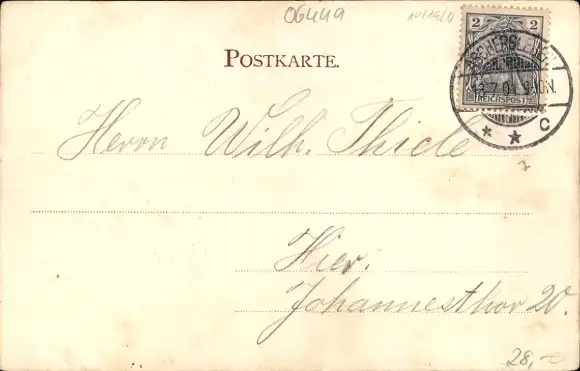 06449
POSTKARTE.
2 2
REICHSPOST
ASCHERSLEBEN
12.7.01. 9-10N.
* * c
Herrn Wilh. Thiele
Hier.
Johannesthor 20.
28,-